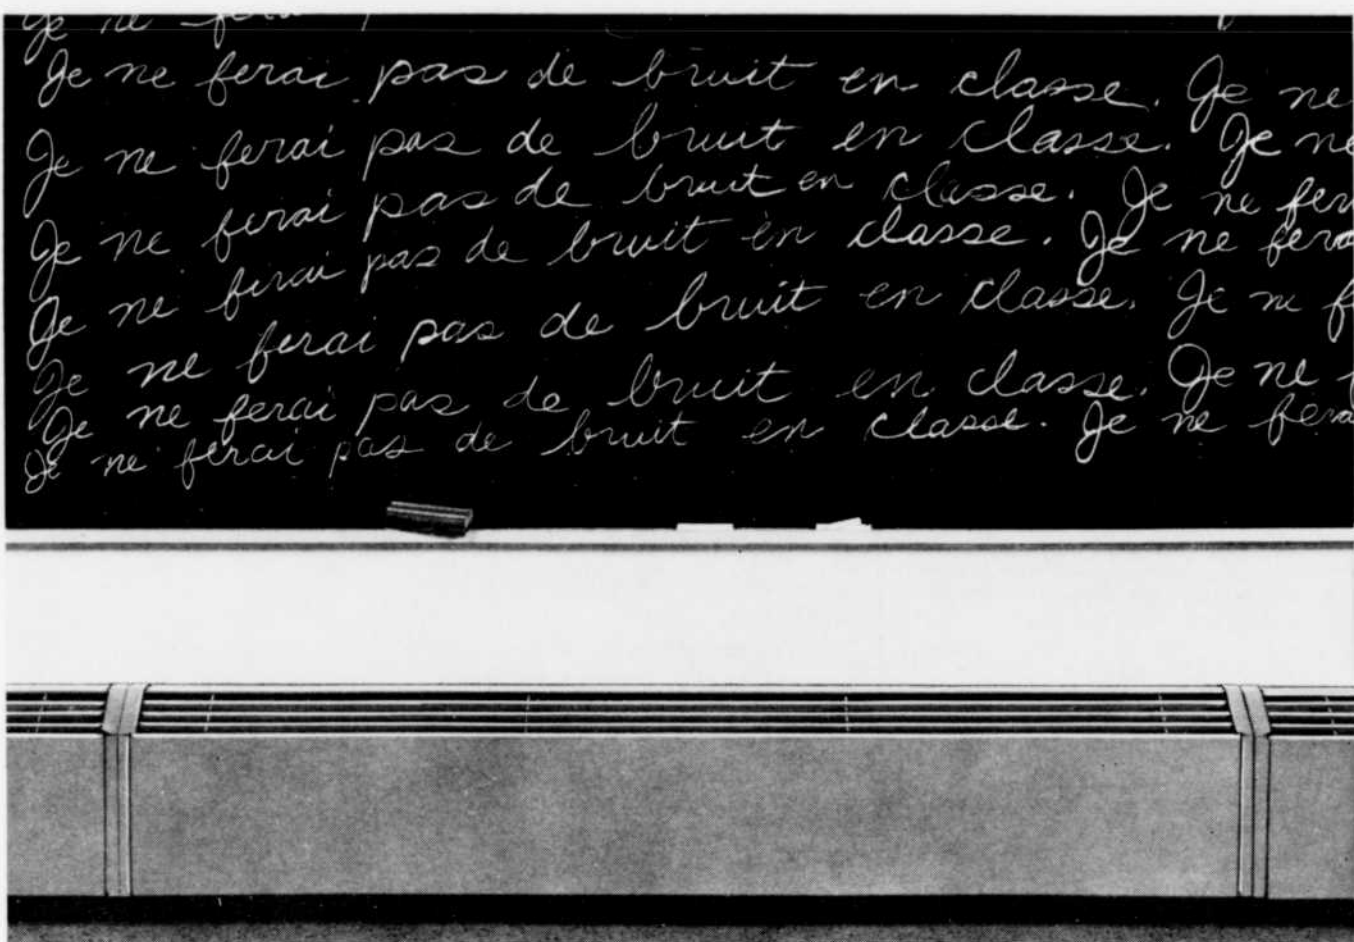 Je ne
Je ne ferai pas de bruit en classe. Je ne
Je ne ferai pas de bruit en classe. Je ne
Je ne ferai pas de bruit en classe. Je ne fer
Je ne ferai pas de bruit en classe. Je ne fera
Je ne ferai pas de bruit en classe. Je ne f
Je ne ferai pas de bruit en classe. Je ne
Je ne ferai pas de bruit en classe. Je ne fera